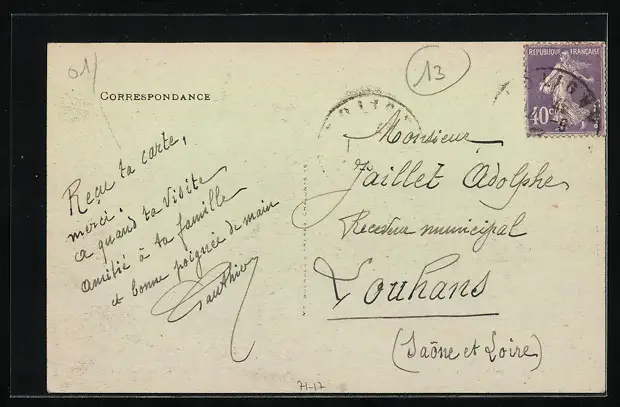 01/
13
CORRESPONDANCE
REPUBLIQUE FRANÇAISE
40c
Reçu ta carte,
merci.
a quand ta visite
amitié à ta famille
et bonne poignée de main
Gauthier
Monsieur
Jaillet Adolphe
Receveur municipal
Louhans
(Saône et Loire)
71-17